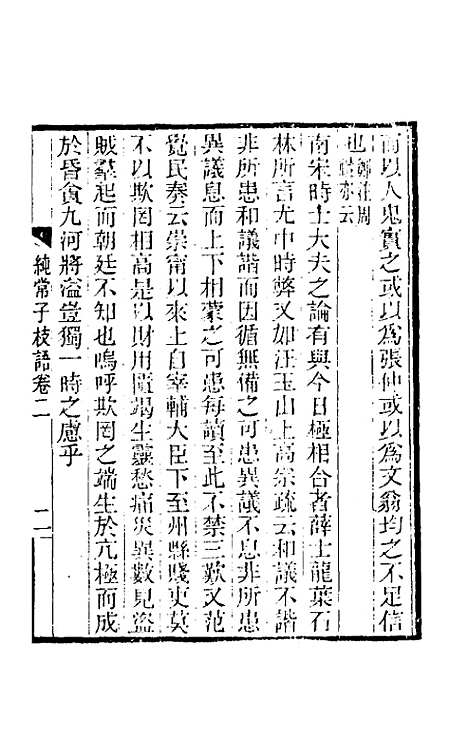 而以人鬼實之或以爲張仲或以爲文翁均之不足信
也鄭注周
禮亦云
南宋時士大夫之論有與今日極相合者薛士龍葉石
林所言尤中時弊又如汪玉山上高宗疏云和議不諧
非所患和議諧而因循無備之可患異議不息非所患
異議息而上下相蒙之可患每讀至此不禁三歎又范
覺民奏云崇甯以來自宰輔大臣下至州縣賤吏莫
不以欺罔相高是以財用匱竭生靈愁痛災異數見盜
賊羣起而朝廷不知也嗚呼欺罔之端生於亢極而成
於昏貪九河將溢豈獨一時之慮乎
純常子枝語卷二
二